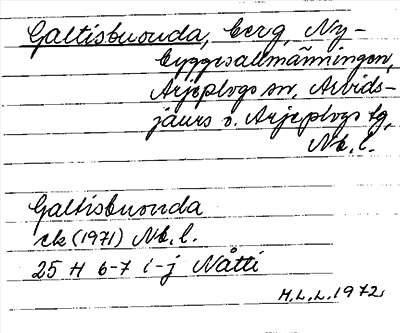 Galtisbuouda, berg, Ny-
byggesallmänningen,
Arjeplogs sn, Arvids-
jaurs o. Arjeplogs tg,
Nb. l.
Galtisbuouda
ek (1971) Nb. l.
25 H 6-7 i-j Nåtti
H.L.L. 1972